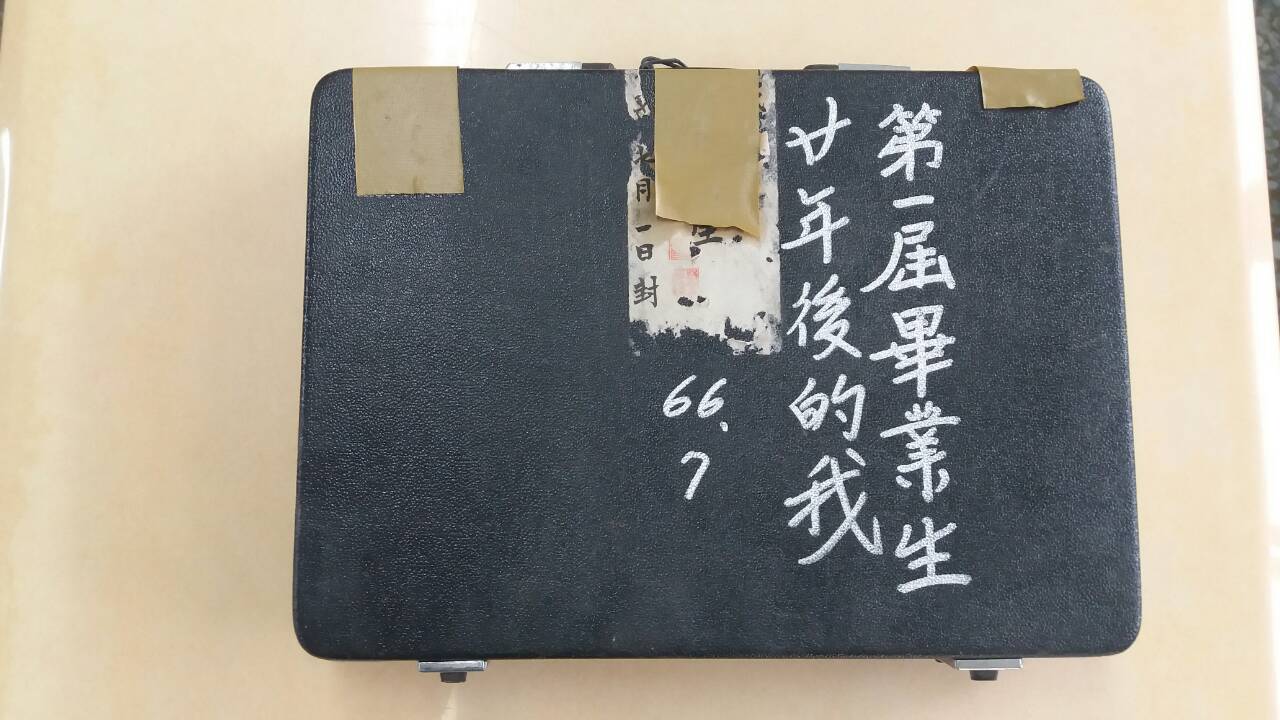 第一屆畢業生
廿年後的我
月一日封
66.7